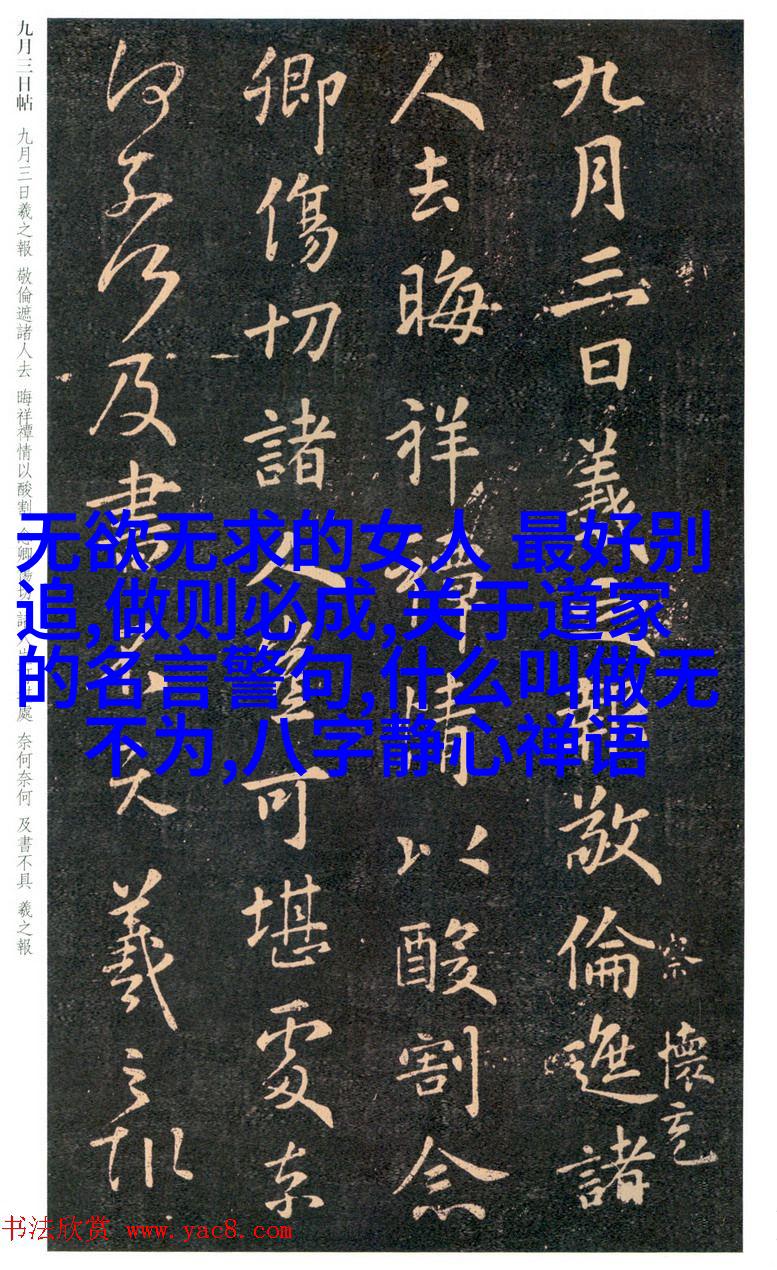 九月三日帖 九月三日羲之報 敬倫遮諸人去 晦祥禫情以酸割 念卿傷切 諸人 可 處 奈何奈何 及書不具 羲之報
九月三日羲之報敬倫遮諸
人去晦祥禫情以酸割念
卿傷切諸人豈可堪處奈
何奈何及書不具羲之報
察懷充
无欲无求的女人 最好别
追,做则必成,关于道家
的名言警句,什么叫做无
不为,八字静心禅语
书法欣赏 www.yac8.com